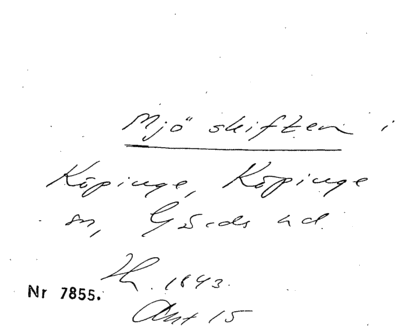 Mjö skiften i
Köpinge, Köpinge
sn, Gärds hd.
1843.
Nr 7855.
Akt 15